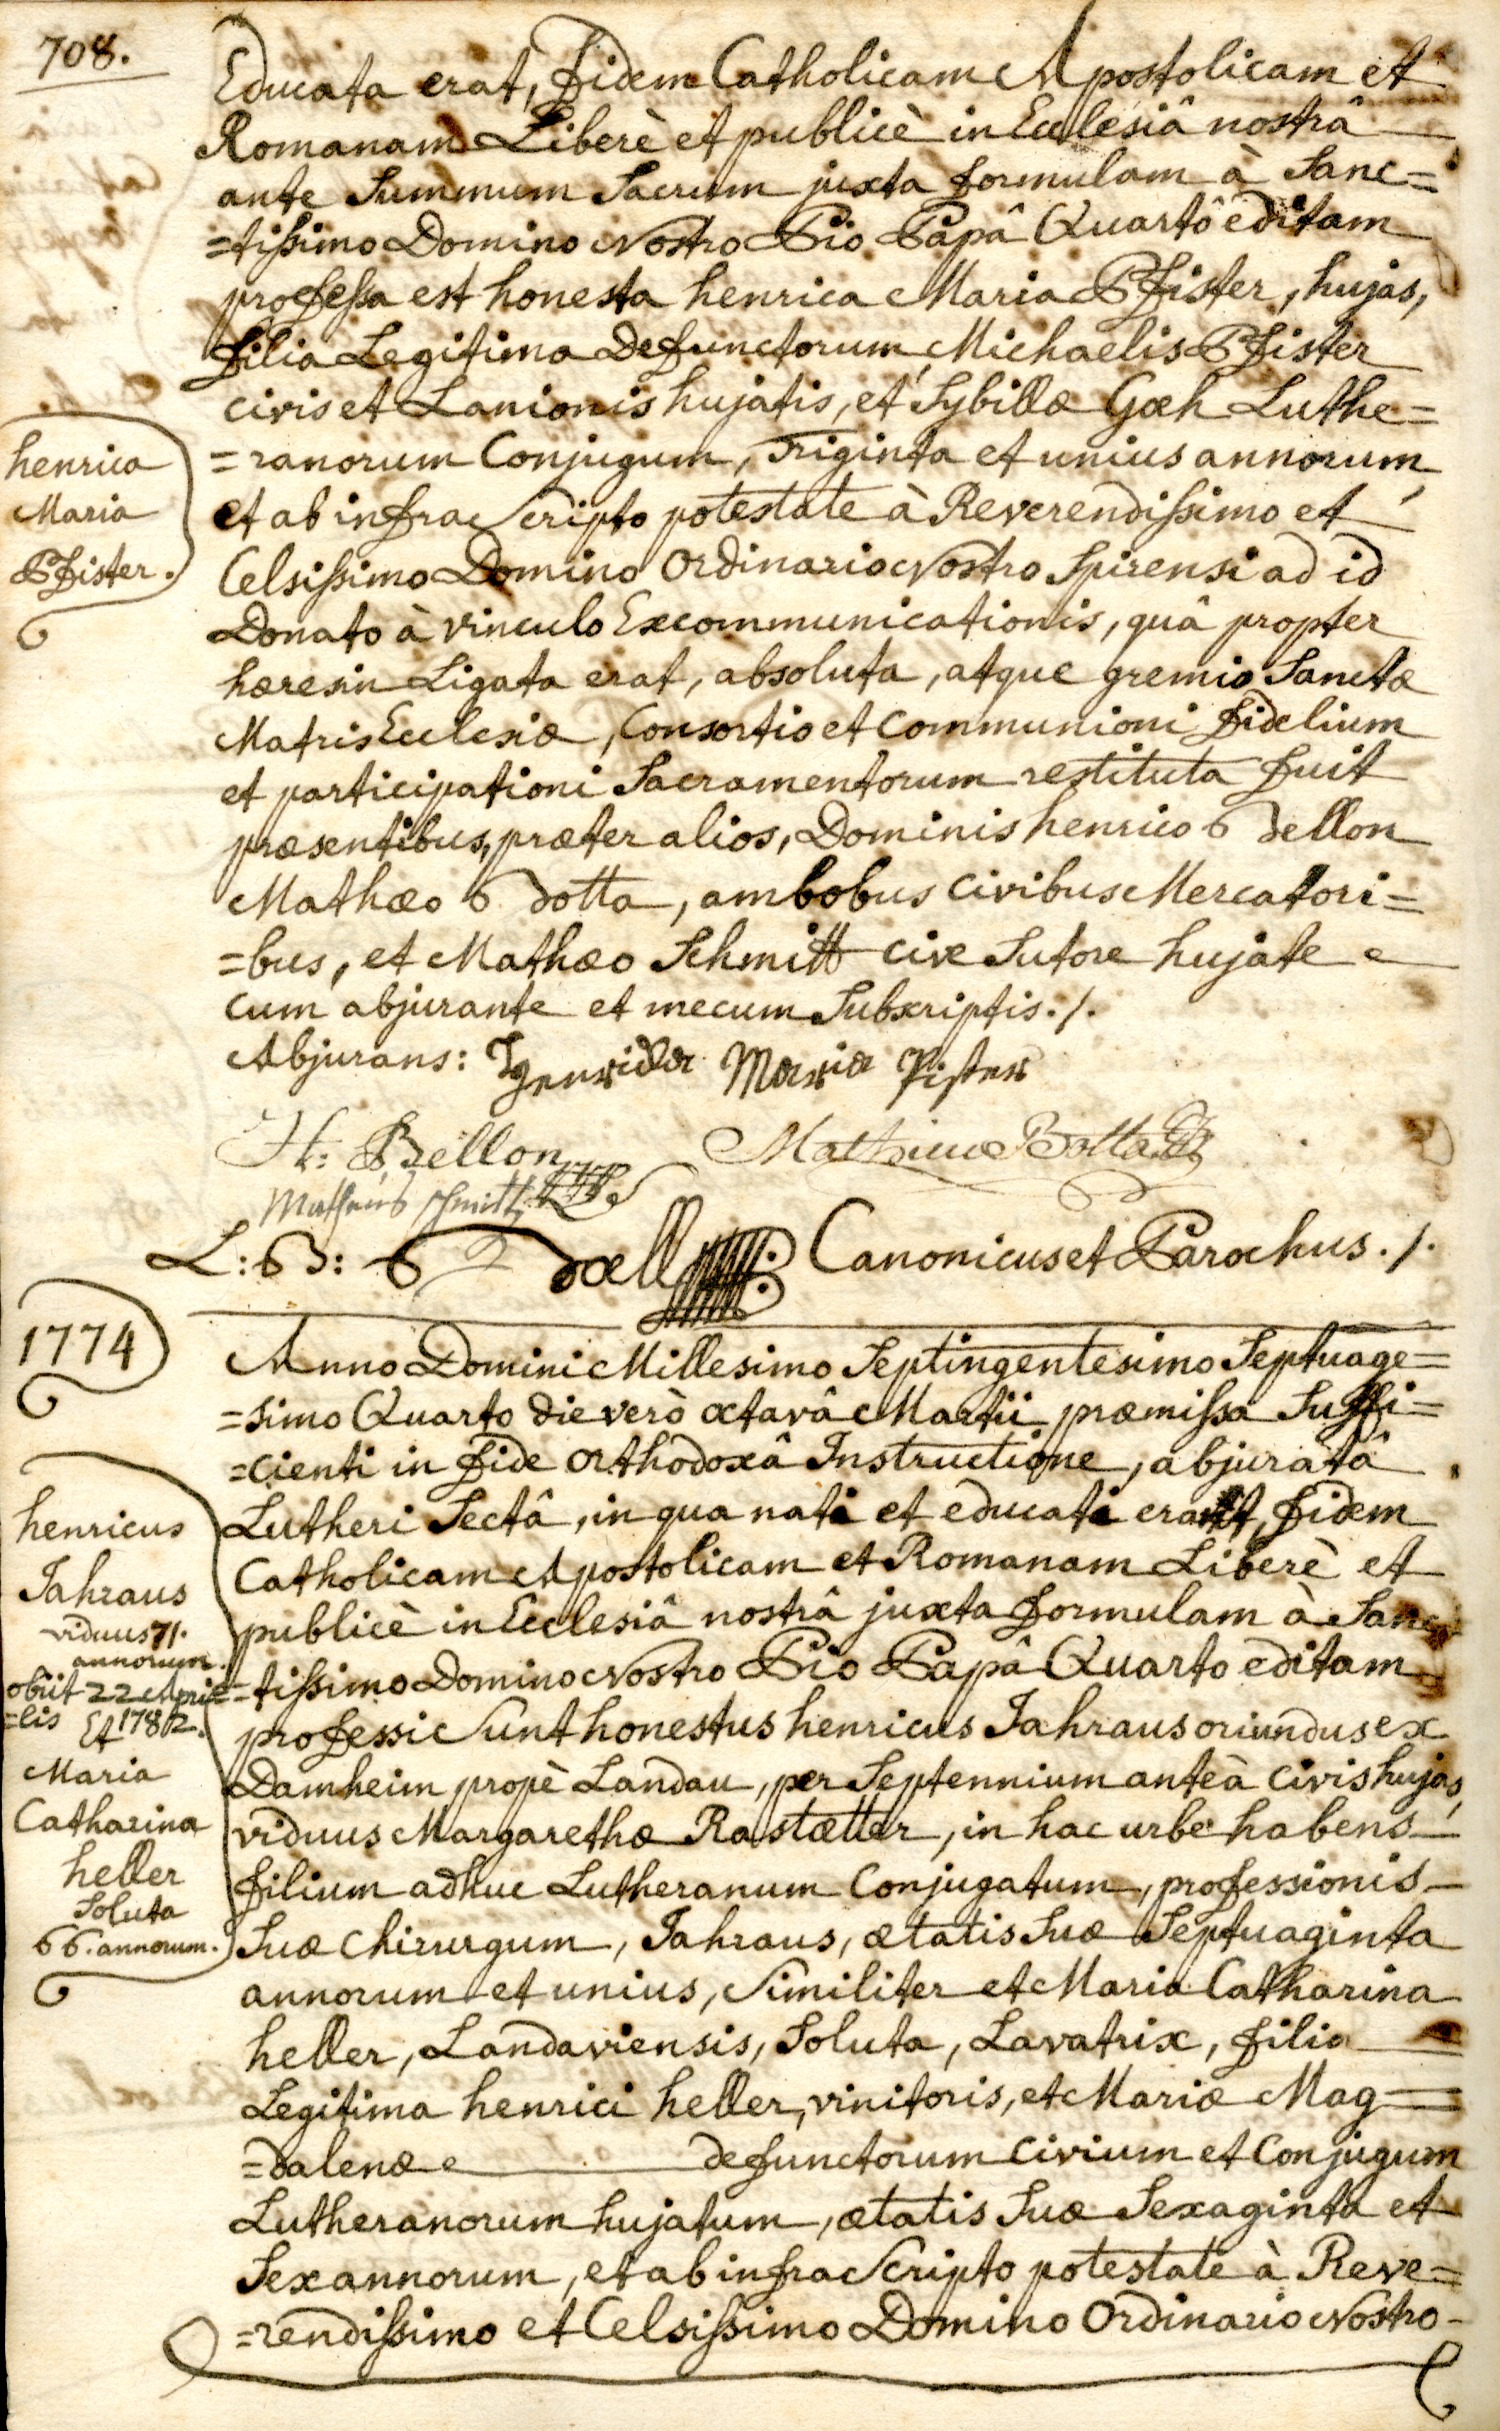 708.
Educata erat, fidem Catholicam Apostolicam et
Romanam Liberè et publicè in Ecclesiâ nostrâ
ante Summum Sacrum juxta formulam à Sanc=
=tissimo Domino Nostro Pio Papâ Quartô editam
professa est honesta henrica Maria Pfister, hujas,
filia Legitima Defunctorum Michaelis Pfister
civis et Lanionis hujatis, et Sybillæ Gæh Luthe=
=ranorum Conjugum, Triginta et unius annorum,
et ab infra Scripto potestate à Reverendissimo et
Celsissimo Domino Ordinario Nostro Spirensi ad id
Donato à vinculo Excommunicationis, quâ propter
hæresin Ligata erat, absoluta, atque gremio Sanctæ
Matris Ecclesiæ, Consortio et Communioni fidelium
et participationi Sacramentorum restituta fuit
præsentibus, præter alios, Dominis henrico Bellon
Mathæo Botta, ambobus civibus Mercatori=
=bus, et Mathæo Schmitt cive Sutore hujate
cum abjurante et mecum Subscriptis ./.
henrica
Maria
Pfister.
Abjurans: Henrica Maria Pister
H: Bellon Mathieu Botta
Matheus schmitt
L: B: Doell Canonicus et Parochus ./.
1774
Anno Domini Millesimo Septingentesimo Septuage=
=simo Quarto die verò octavâ Martii præmissa Suffi=
=cienti in fide orthodoxâ Instructione, abjuratâ
Lutheri Sectâ, in qua nati et educati erant, fidem
Catholicam Apostolicam et Romanam Liberè et
publicè in Ecclesiâ nostrâ juxta formulam à Sanc
=tissimo Domino Nostro Pio Papâ Quarto editam
professi Sunt honestus henricus Jahraus oriundus ex
Damheim propè Landau, per Septennium anteà civis hujas,
viduus Margarethæ Rastætter, in hac urbe habens
filium adhuc Lutheranum Conjugatum, professionis
Suæ Chirurgum, Jahraus, ætatis Suæ Septuaginta
annorum et unius, Similiter et Maria Catharina
heller, Landaviensis, Soluta, Lavatrix, filia
Legitima henrici heller, vinitoris, et Mariæ Mag=
=dalenæ defunctorum civium et Conjugum
Lutheranorum hujatum, ætatis Suæ Sexaginta et
Sex annorum, et ab infra Scripto potestate à Reve=
=rendissimo et Celsissimo Domino Ordinario Nostro
henricus
Jahraus
viduus 71.
annorum.
obiit 22 Apri=
=lis 1782.
Et
Maria
Catharina
heller
Soluta
66. annorum.